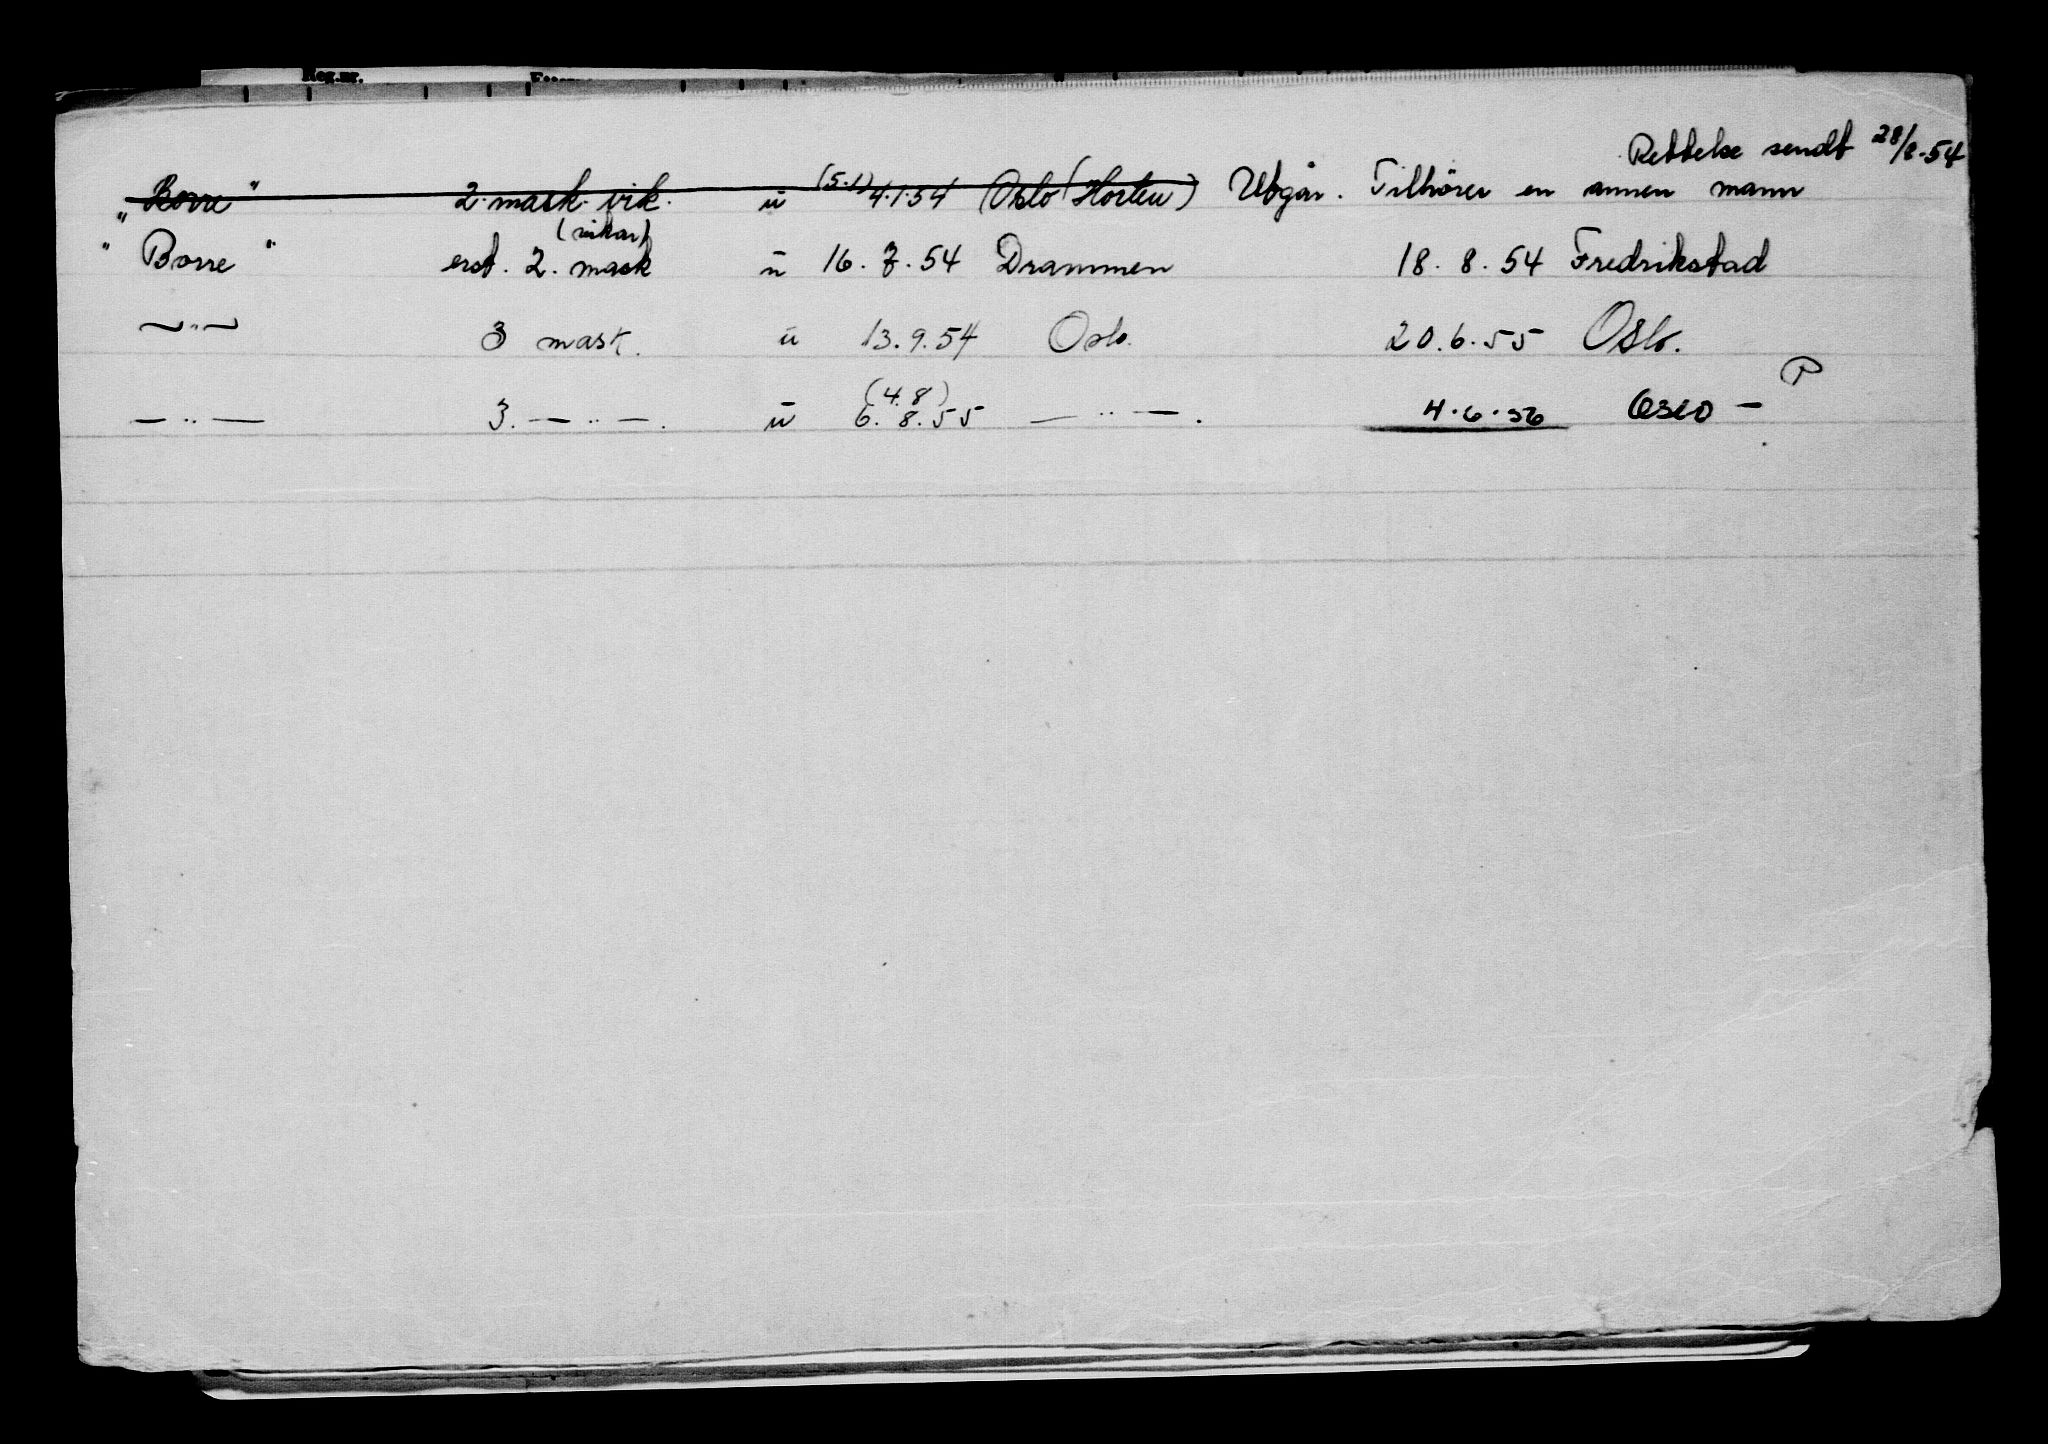 Reg.nr.
Rettelse sendt 28/8-54
"Borre" 2. mask. vik. u (5.1) 4.1.54 (Oslo (Horten) Utgår. Tilhører en annen mann
(vikar)
"Borre" erst. 2. mask u 16.7.54 Drammen 18.8.54 Fredrikstad
—"— 3 mask. u 13.9.54 Oslo. 20.6.55 Oslo.
(4.8) P
—"— 3. —"—. u 6.8.55 —"—. 4.6.56 OSLO —